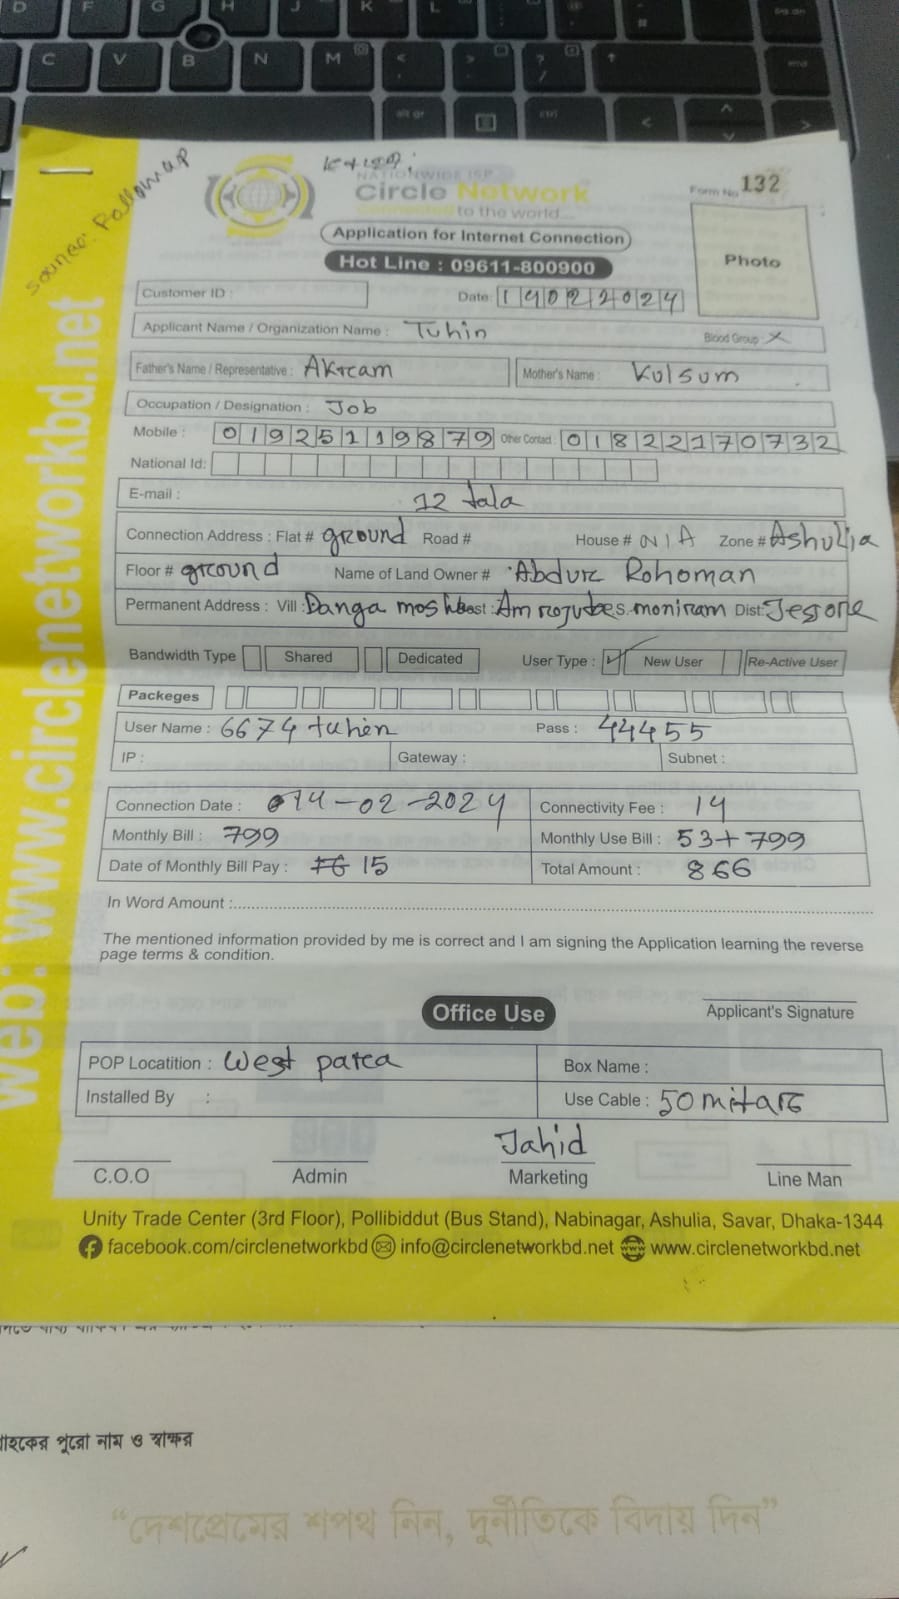 Source: Followup
NATIONWIDE ISP
Circle Network
Connected to the world...
Form No. 132
Application for Internet Connection
Hot Line : 09611-800900
Photo
Customer ID :
Date: 14022024
Applicant Name / Organization Name : Tuhin
Blood Group : X
Father's Name / Representative : Akram
Mother's Name : Kulsum
Occupation / Designation : Job
Mobile : 01925119879 Other Contact : 01822170732
National Id:
E-mail :
12 tala
Connection Address : Flat # ground Road # House # N/A Zone # Ashulia
Floor # ground Name of Land Owner # Abdur Rohoman
Permanent Address : Vill : Danga P.S. moniram Dist: Jessore
Bandwidth Type Shared Dedicated User Type : ✓ New User Re-Active User
Packeges
User Name : 6674 tuhin Pass : 44455
IP : Gateway : Subnet :
Connection Date : 14-02-2024 Connectivity Fee : 14
Monthly Bill : 799 Monthly Use Bill : 53+799
Date of Monthly Bill Pay : 15 Total Amount : 866
In Word Amount :
The mentioned information provided by me is correct and I am signing the Application learning the reverse
page terms & condition.
Office Use
Applicant's Signature
POP Locatition : West para Box Name :
Installed By : Use Cable : 50 mitar
Jahid
C.O.O Admin Marketing Line Man
Unity Trade Center (3rd Floor), Pollibiddut (Bus Stand), Nabinagar, Ashulia, Savar, Dhaka-1344
facebook.com/circlenetworkbd info@circlenetworkbd.net www.circlenetworkbd.net
web: www.circlenetworkbd.net
পুরো নাম ও স্বাক্ষর
“দেশপ্রেমের শপথ নিন, দুর্নীতিকে বিদায় দিন”